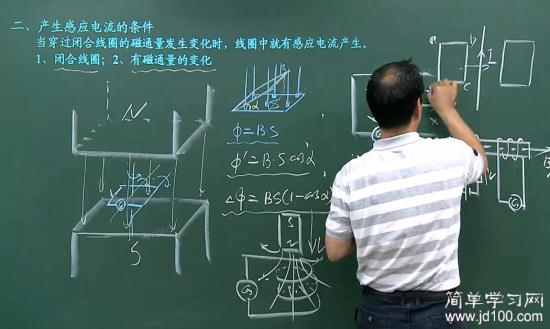 二、产生感应电流的条件
当穿过闭合线圈的磁通量发生变化时，线圈中就有感应电流产生。
1、闭合线圈；2、有磁通量的变化
N
S
ϕ=B·S
ϕ'=B·S cosα
Δϕ=BS(1-cosα)
S
G
G
a
b
I
c
G
简单学习网
www.jd100.com